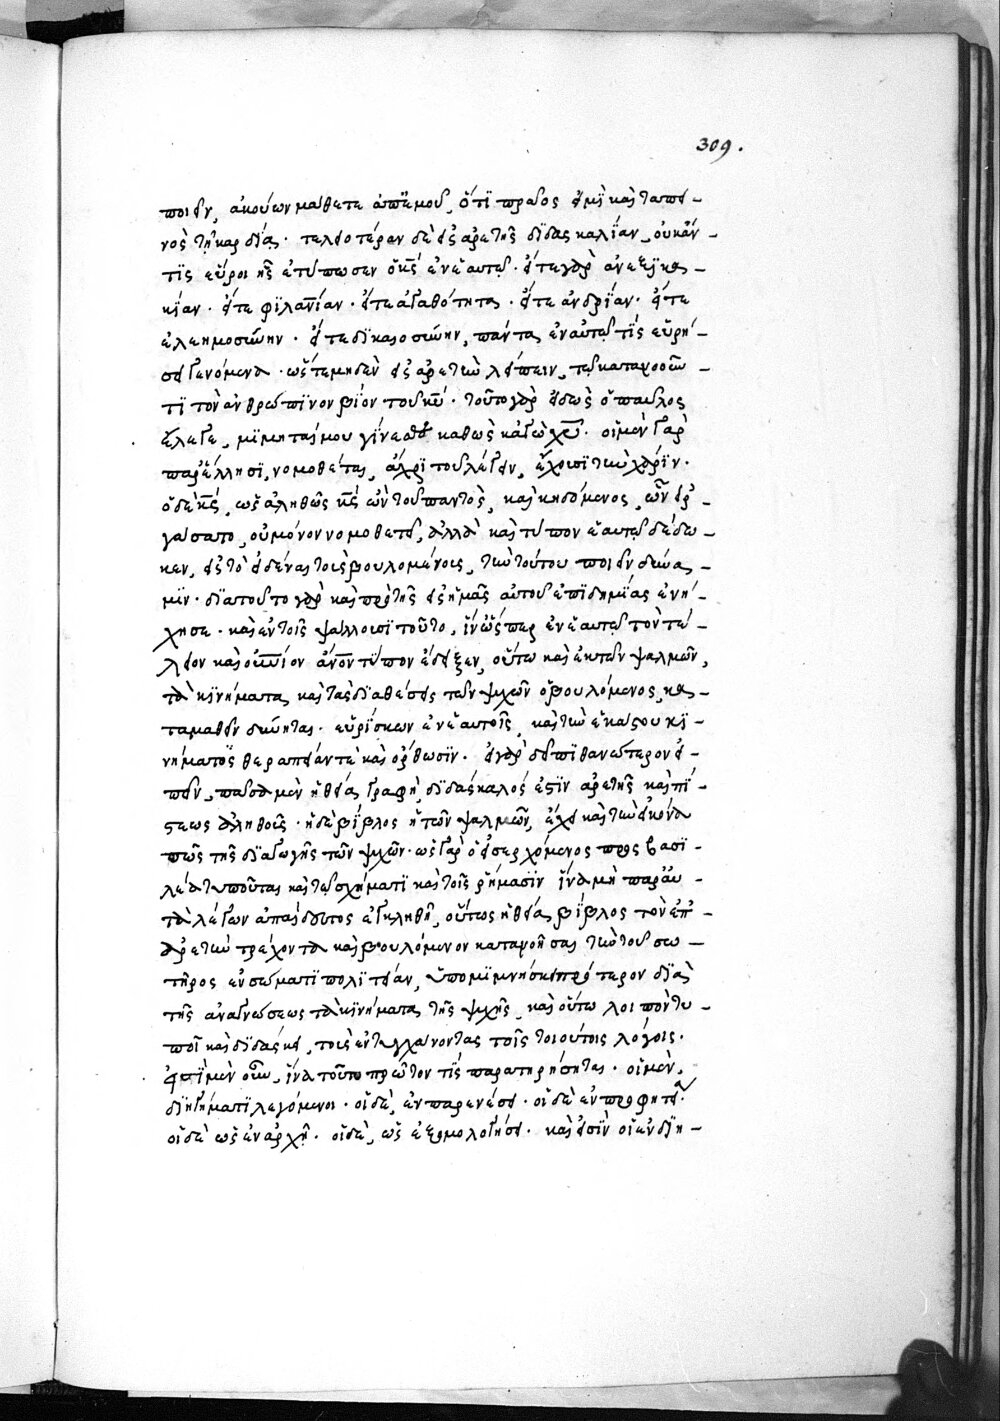 309.
ποιεῖν, ἀκούων μάθετε ἀπ' ἐμοῦ, ὅτι πρᾶος εἰμὶ καὶ ταπει-
νὸς τῇ καρδίᾳ. τελειοτέραν δὲ εἰς ἀρετῆς διδασκαλίαν, οὐκ ἄν
τις εὕροι ἧς ἐτύπωσεν ὁ κς ἐν ἑαυτῷ. εἴτε γὰρ ἀνεξικα-
κίαν. εἴτε φιλανίαν. εἴτε ἀγαθότητα. εἴτε ἀνδρίαν. εἴτε
ἐλεημοσύνην. εἴτε δικαιοσύνην, πάντα ἐν αὐτῷ τις εὑρή-
σει γενόμενα. ὥς τε μηδὲν εἰς ἀρετὴν λείπειν, τῷ κατανοοῦν-
τι τὸν ἀνθρώπινον βίον τοῦ κυ. τοῦτο γὰρ εἰδὼς ὁ παῦλος
ἔλεγε, μιμηταί μου γίνεσθε καθὼς κἀγὼ χυ. οἱ μὲν γὰρ
παρ' ἕλλησι, νομοθέται, ἄχρι τοῦ λέγειν, ἔχουσι τὴν χάριν.
ὁ δὲ κς, ὡς ἀληθῶς κς ὢν τοῦ παντὸς, καὶ κηδόμενος, ὧν εἰρ-
γάσατο, οὐ μόνον νομοθετεῖ, ἀλλὰ καὶ τύπον ἑαυτῷ δέδω-
κεν, εἰς τὸ εἰδέναι τοὺς βουλομένους, τὴν τούτου ποιεῖν δύνα-
μιν. διὰ τοῦτο γὰρ καὶ πρὸ τῆς εἰς ἡμᾶς αὐτοῦ ἐπιδημίας ἐνή-
χησε. καὶ ἐν τοῖς ψάλλουσι τοῦτο, ἵν' ὥσπερ ἐν ἑαυτῷ τὸν τέ-
λειον καὶ οὐνιον ἄνον τύπον ἔδειξεν, οὕτω καὶ ἐκ τῶν ψαλμῶν,
τὰ κινήματα, καὶ τὰς διαθέσεις τῶν ψυχῶν ὁ βουλόμενος, κα-
ταμαθεῖν δύνηται. εὑρίσκων ἐν ἑαυτοῖς, καὶ τὴν ἑκάστου κι-
νήματος θεραπείαν τὲ καὶ ὀρθωσιν. εἰ γὰρ δεῖ πιθανώτερον εἰ-
πεῖν, πᾶσα μὲν ἡ θεία γραφὴ, διδάσκαλός ἐστιν ἀρετῆς καὶ πί-
στεως ἀληθοῦς. ἡ δὲ βίβλος ἡ τῶν ψαλμῶν, ἔχει καὶ τὴν εἰκόνα
πῶς τῆς διαγωγῆς τῶν ψυχῶν. ὡς γὰρ ὁ εἰσερχόμενος πρὸς βασι-
λέα τυποῦται καὶ τῷ σχήματι καὶ τοῖς ῥήμασιν ἵνα μὴ παρ' αὐ-
τὰ λέγων ἀπαίδευτος ἐγκληθῇ, οὕτως ἡ θεία βίβλος τὸν ἐπ'
ἀρετὴν τρέχοντα καὶ βουλόμενον κατανοῆσαι τὴν τοῦ σω-
τῆρος ἐν σώματι πολιτείαν, ὑπομιμνήσκει πρότερον διὰ
τῆς ἀναγνώσεως τὰ κινήματα τῆς ψυχῆς, καὶ οὕτω λοιπὸν τυ-
ποῖ καὶ διδάσκει, τοὺς ἐντυγχάνοντας τοῖς τοιούτοις λόγοις.
ἔστι μὲν οὖν, ἵνα τοῦτο πρῶτον τις παρατηρήσηται. οἱ μὲν,
διηγήματι λεγόμενοι. οἱ δὲ, ἐν παραινέσει. οἱ δὲ ἐν προφητεί.
οἱ δὲ ὡς ἐν ἀρχῇ. οἱ δὲ, ὡς ἐξομολογήσει. καὶ εἰσὶν οἱ ἐν διη-